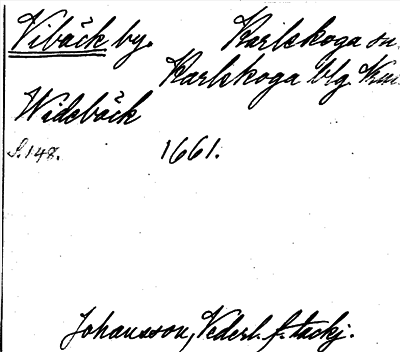 Vibäck by. Karlskoga sn.
Karlskoga blg
Widebäck
S. 148. 1661.
Johansson, Vederl. f. tackj.